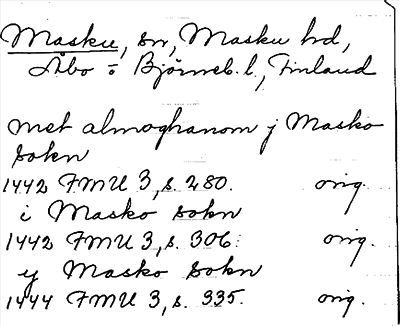 Masku, sn, Masku hd,
Åbo o Björneb. l., Finland
met almoghanom j Masko
sokn
1442 FMU 3, s. 280. orig.
i Masko sokn
1442 FMU 3, s. 306. orig.
y Masko sokn
1444 FMU 3, s. 335. orig.